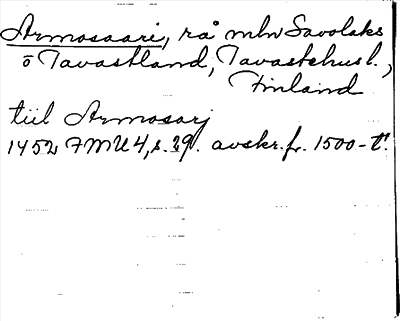 Armosaari, rå mln Savolaks
o Tavastland, Tavastehusl.,
Finland
tiil Armosarj
1452 FMU 4, s. 29. avskr. fr. 1500-t.